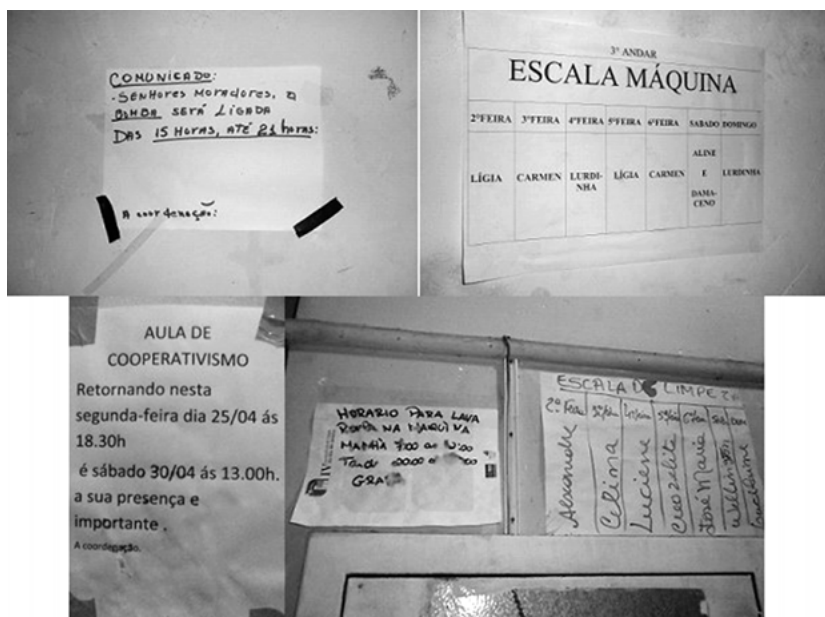 COMUNICADO:
- SENHORES MORADORES, A
BOMBA SERÁ LIGADA
DAS 15 HORAS, ATÉ 21 horas:
A coordenação:
3º ANDAR
ESCALA MÁQUINA
2ºFEIRA 3ºFEIRA 4ºFEIRA 5ºFEIRA 6ºFEIRA SABADO DOMINGO
LÍGIA CARMEN LURDI-NHA LÍGIA CARMEN ALINE E DAMA-CENO LURDINHA
AULA DE
COOPERATIVISMO
Retornando nesta
segunda-feira dia 25/04 ás
18.30h
é sábado 30/04 ás 13.00h.
a sua presença e
importante .
A coordegação.
HORARIO PARA LAVA
ROUPA NA MAQUINA
MANHÃ 7:00 ao
Tarde
IV
ESCALA DE LIMPEZA
2ª Feira
Alexandre
Celina
Luciene
Creozalite
José Maria
Wellington